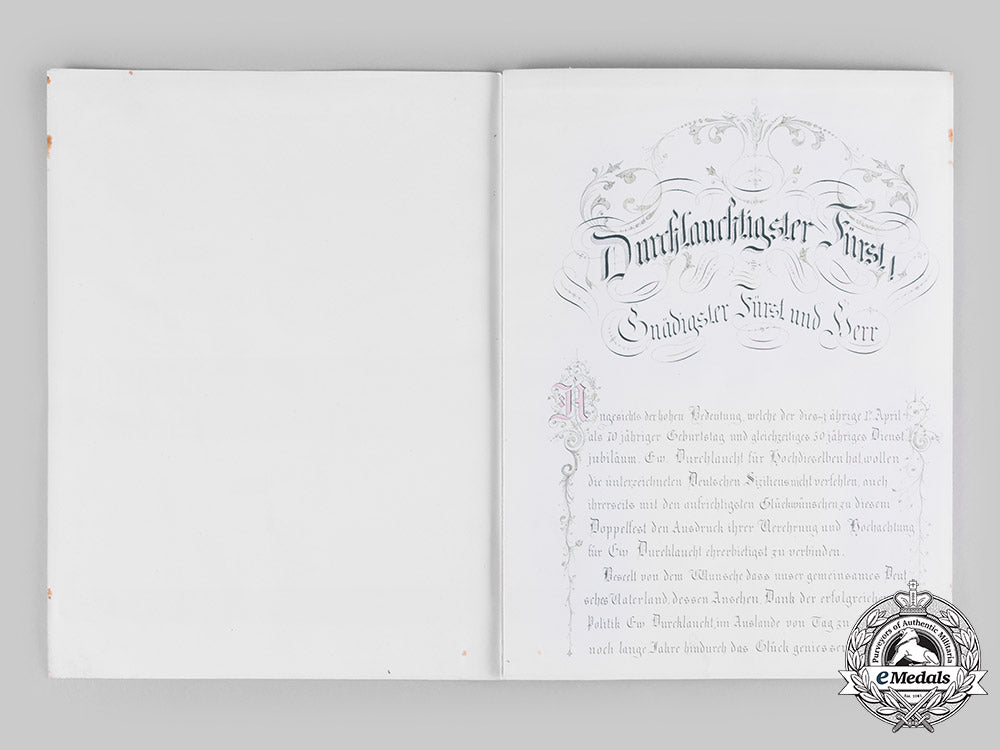 Durchlauchtigster Fürst!
Gnädigster Fürst und Herr
Angesichts der hohen Bedeutung, welche der diesjährige 1te April
als 70 jähriger Geburtstag und gleichzeitiges 50 jähriges Dienst
jubiläum, Ew. Durchlaucht für Hochdieselben hat, wollen
die unterzeichneten Deutschen Siziliens nicht verfehlen, auch
ihrerseits mit den aufrichtigsten Glückwünschen zu diesem
Doppelfest den Ausdruck ihrer Verehrung und Hochachtung
für Ew Durchlaucht ehrerbietigst zu verbinden.
Beseelt von dem Wunsche dass unser gemeinsames Deut
sches Vaterland, dessen Ansehen, Dank der erfolgreichen
Politik Ew Durchlaucht, im Auslande von Tag zu
noch lange Jahre hindurch das Glück geniessen
Purveyors of Authentic Militaria
eMedals